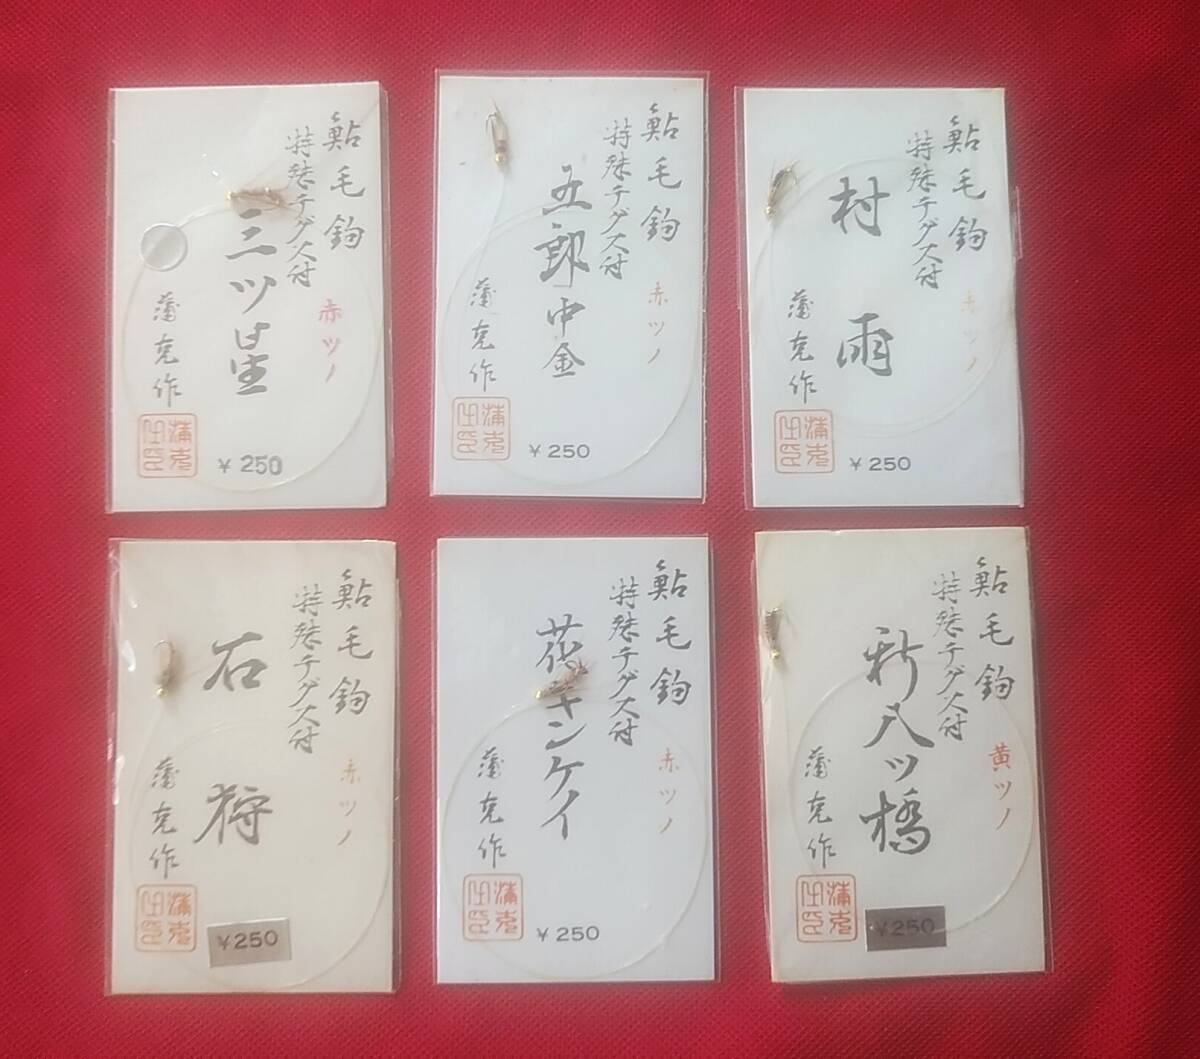 鮎毛鈎
特殊テグス付
三ツ星
赤ツノ
蒲克作
¥250
鮎毛鈎
特殊テグス付
五郎中金
赤ツノ
蒲克作
¥250
鮎毛鈎
特殊テグス付
村雨
赤ツノ
蒲克作
¥250
鮎毛鈎
特殊テグス付
石狩
赤ツノ
蒲克作
¥250
鮎毛鈎
特殊テグス付
キンケイ
赤ツノ
蒲克作
¥250
鮎毛鈎
特殊テグス付
新八ツ橋
黄ツノ
蒲克作
¥250